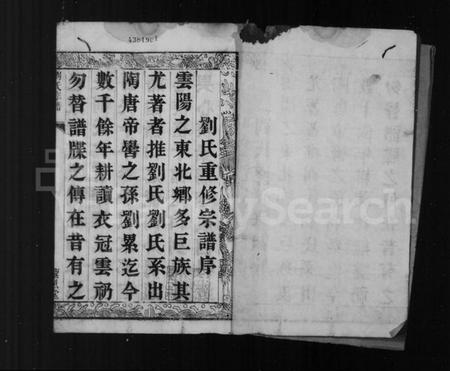 4381961
劉氏重修宗譜序
雲陽之東北鄉多巨族其
尤著者推劉氏劉氏系出
陶唐帝嚳之孫劉累迄今
數千餘年耕讀衣冠雲礽
勿替譜牒之傳在昔有之
MySearch